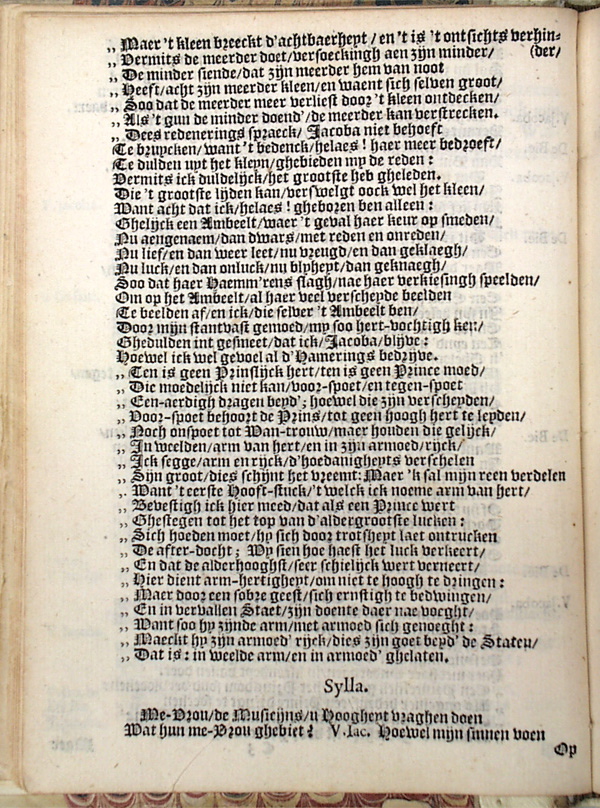 „ Maer 't kleen breeckt d'achtbaerheyt / en 't is 't ontsichts verhin-
„ Vermits de meerder doet / versoeckingh aen zijn minder / (der /
„ De minder siende / dat zijn meerder hem van noot
„ Heeft / acht zijn meerder kleen / en waent sich selven groot /
„ Soo dat de meerder meer verliest door 't kleen ontdecken /
„ Als 't gun de minder doend' / de meerder kan verstrecken.
„ Dees redenerings spraeck / Jacoba niet behoeft
Te bruycken / want 't bedenck / helaes ! haer meer bedroeft /
Te dulden uyt het kleyn / ghebieden my de reden :
Vermits ick duldelijck / het grootste heb gheleden.
Die 't grootste lijden kan / verswelgt oock wel het kleen /
Want acht dat ick / helaes ! gheboren ben alleen :
Ghelijck een Ambeelt / waer 't geval haer keur op smeden /
Nu aengenaem / dan dwars / met reden en onreden /
Nu lief / en dan weer leet / nu vreugd / en dan geklaegh /
Nu luck / en dan onluck / nu blyheyt / dan geknaegh /
Soo dat haer Haemm'rens slagh / nae haer verkiesingh speelden /
Om op het Ambeelt / al haer veel verscheyde beelden
Te beelden af / en ick / die selver 't Ambeelt ben /
Door mijn stantvast gemoed / my soo hert-vochtigh ken /
Ghedulden int gesmeet / dat ick / Jacoba / blijve :
Hoewel ick wel gevoel al d'Hamerings bedrijve.
„ Ten is geen Prinslijck hert / ten is geen Prince moed /
„ Die moedelijck niet kan / voor-spoet / en tegen-spoet
„ Een-aerdigh dragen beyd' ; hoewel die zijn verscheyden /
„ Voor-spoet behoort de Prins / tot geen hoogh hert te leyden /
„ Noch onspoet tot Wan-trouw / maer houden die gelijck /
„ In weelden / arm van hert / en in zijn armoed / rijck /
„ Ick segge / arm en rijck / d'hoedanigheyts verschelen
„ Sijn groot / dies schijnt het vreemt: Maer 'k sal mijn reen verdelen
„ Want 't eerste Hooft-stuck / 't welck ick noeme arm van hert /
„ Bevestigh ick hier meed / dat als een Prince wert
„ Ghestegen tot het top van d'aldergrootste lucken :
„ Sich hoeden moet / hy sich door trotsheyt laet ontrucken
„ De after-docht ; Wy sien hoe haest het luck verkeert /
„ En dat de alderhooghst / seer schielijck wert verneert /
„ Hier dient arm-hertigheyt / om niet te hoogh te dringen :
„ Maer door een sobre geest / sich ernstigh te bedwingen /
„ En in vervallen Staet / zijn doente daer nae voeght /
„ Want soo hy zijnde arm / met armoed sich genoeght :
„ Maeckt hy zijn armoed' rijck / dies zijn goet beyd' de Staten /
„ Dat is : in weelde arm / en in armoed' ghelaten.
Sylla.
Me-Vrou / de Musicijns / u Hoogheyt vraghen doen
Wat hun me-Vrou ghebiet ? V. Jac. Hoewel mijn sinnen voen
Op